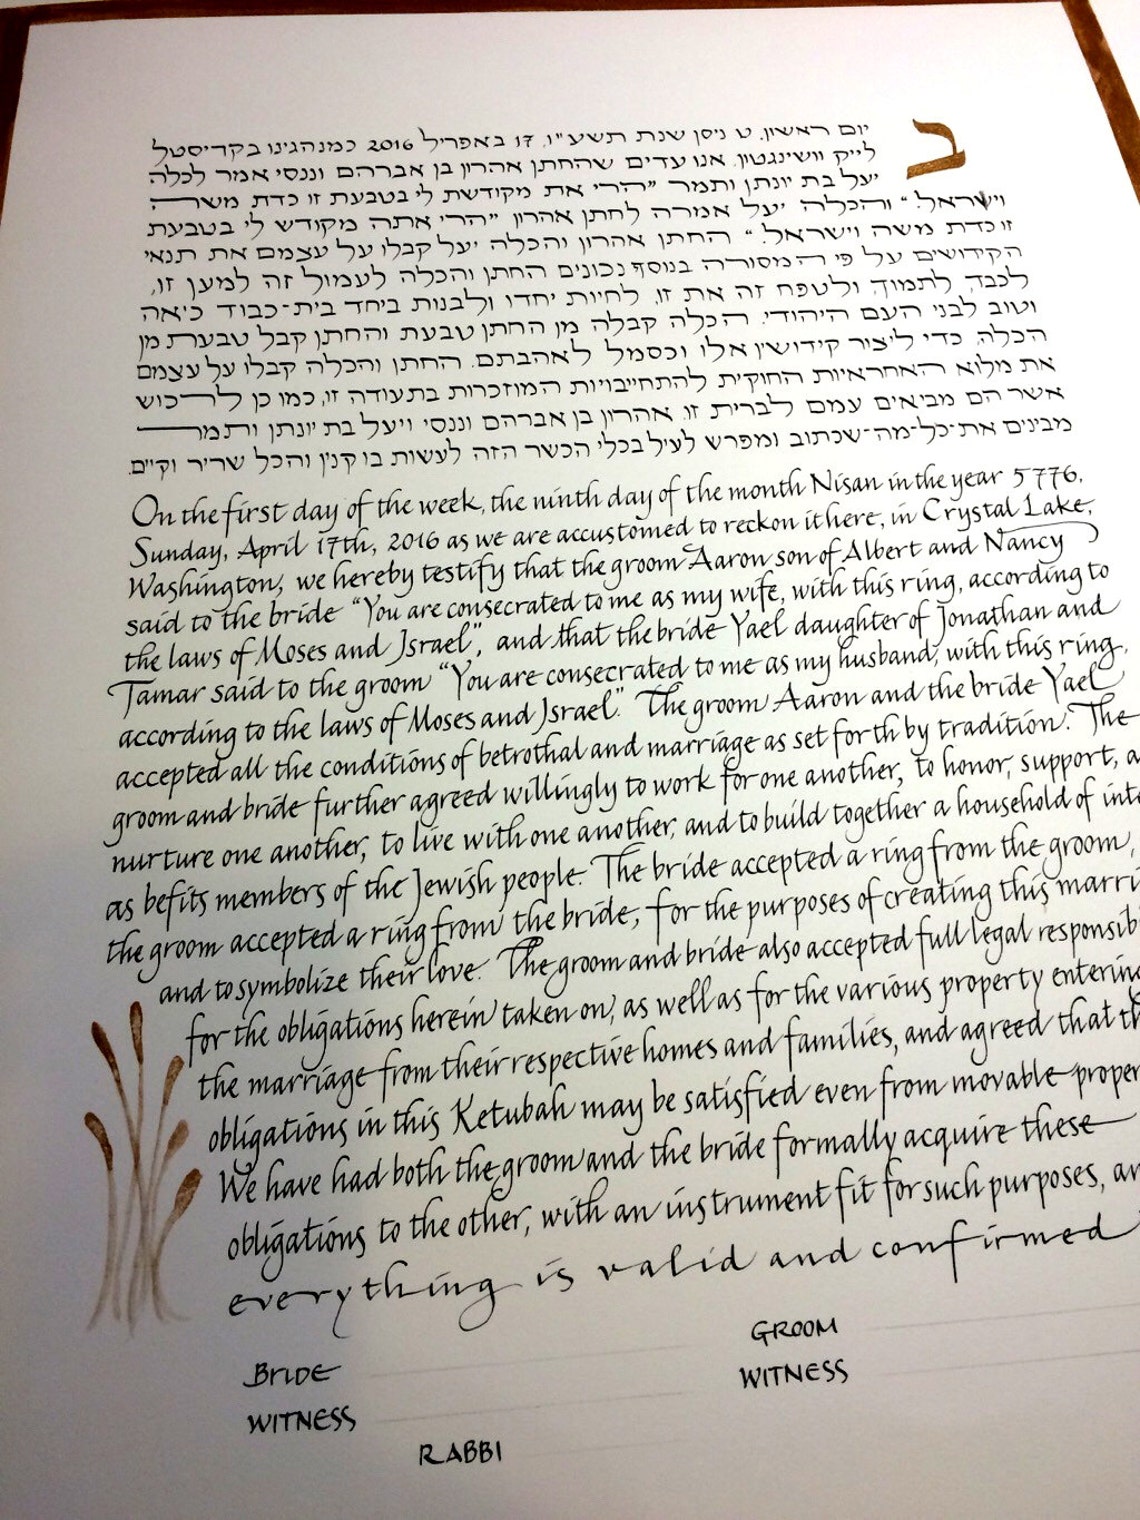 ב
יום ראשון, ט ניסן שנת תשע״ו, 17 באפריל 2016 כמנהגינו בקריסטל
לייק וושינגטון. אנו עדים שהחתן אהרון בן אברהם וננסי אמר לכלה
יעל בת יונתן ותמר ״הרי את מקודשת לי בטבעת זו כדת משה
וישראל.״ והכלה יעל אמרה לחתן אהרון ״הרי אתה מקודש לי בטבעת
זו כדת משה וישראל.״ החתן אהרון והכלה יעל קבלו על עצמם את תנאי
הקידושים על פי המסורה בנוסף נכונים החתן והכלה לעמול זה למען זו,
לכבד, לתמוך, ולטפח זה את זו, לחיות יחדו ולבנות ביחד בית־כבוד כיאה
וטוב לבני העם היהודי. הכלה קבלה מן החתן טבעת והחתן קבל טבעת מן
הכלה, כדי ליצור קידושין אלו וכסמל לאהבתם. החתן והכלה קבלו על עצמם
את מלוא האחראיות החוקית להתחייבויות המוזכרות בתעודה זו, כמו כן לרכוש
אשר הם מביאים עמם לברית זו. אהרון בן אברהם וננסי ויעל בת יונתן ותמר
מבינים את־כל־מה־שכתוב ומפרש לעיל בכלי הכשר הזה לעשות בו קנין והכל שריר וקיים.
On the first day of the week, the ninth day of the month Nisan in the year 5776,
Sunday, April 17th, 2016 as we are accustomed to reckon it here, in Crystal Lake,
Washington, we hereby testify that the groom Aaron son of Albert and Nancy
said to the bride "You are consecrated to me as my wife, with this ring, according to
the laws of Moses and Israel", and that the bride Yael daughter of Jonathan and
Tamar said to the groom "You are consecrated to me as my husband, with this ring,
according to the laws of Moses and Israel." The groom Aaron and the bride Yael
accepted all the conditions of betrothal and marriage as set forth by tradition. The
groom and bride further agreed willingly to work for one another, to honor, support, a
nurture one another, to live with one another, and to build together a household of inte
as befits members of the Jewish people. The bride accepted a ring from the groom,
the groom accepted a ring from the bride, for the purposes of creating this marri
and to symbolize their love. The groom and bride also accepted full legal responsib
for the obligations herein taken on, as well as for the various property entering
the marriage from their respective homes and families, and agreed that th
obligations in this Ketubah may be satisfied even from movable proper
We have had both the groom and the bride formally acquire these
obligations to the other, with an instrument fit for such purposes, an
everything is valid and confirmed
GROOM
BRIDE
WITNESS
WITNESS
RABBI